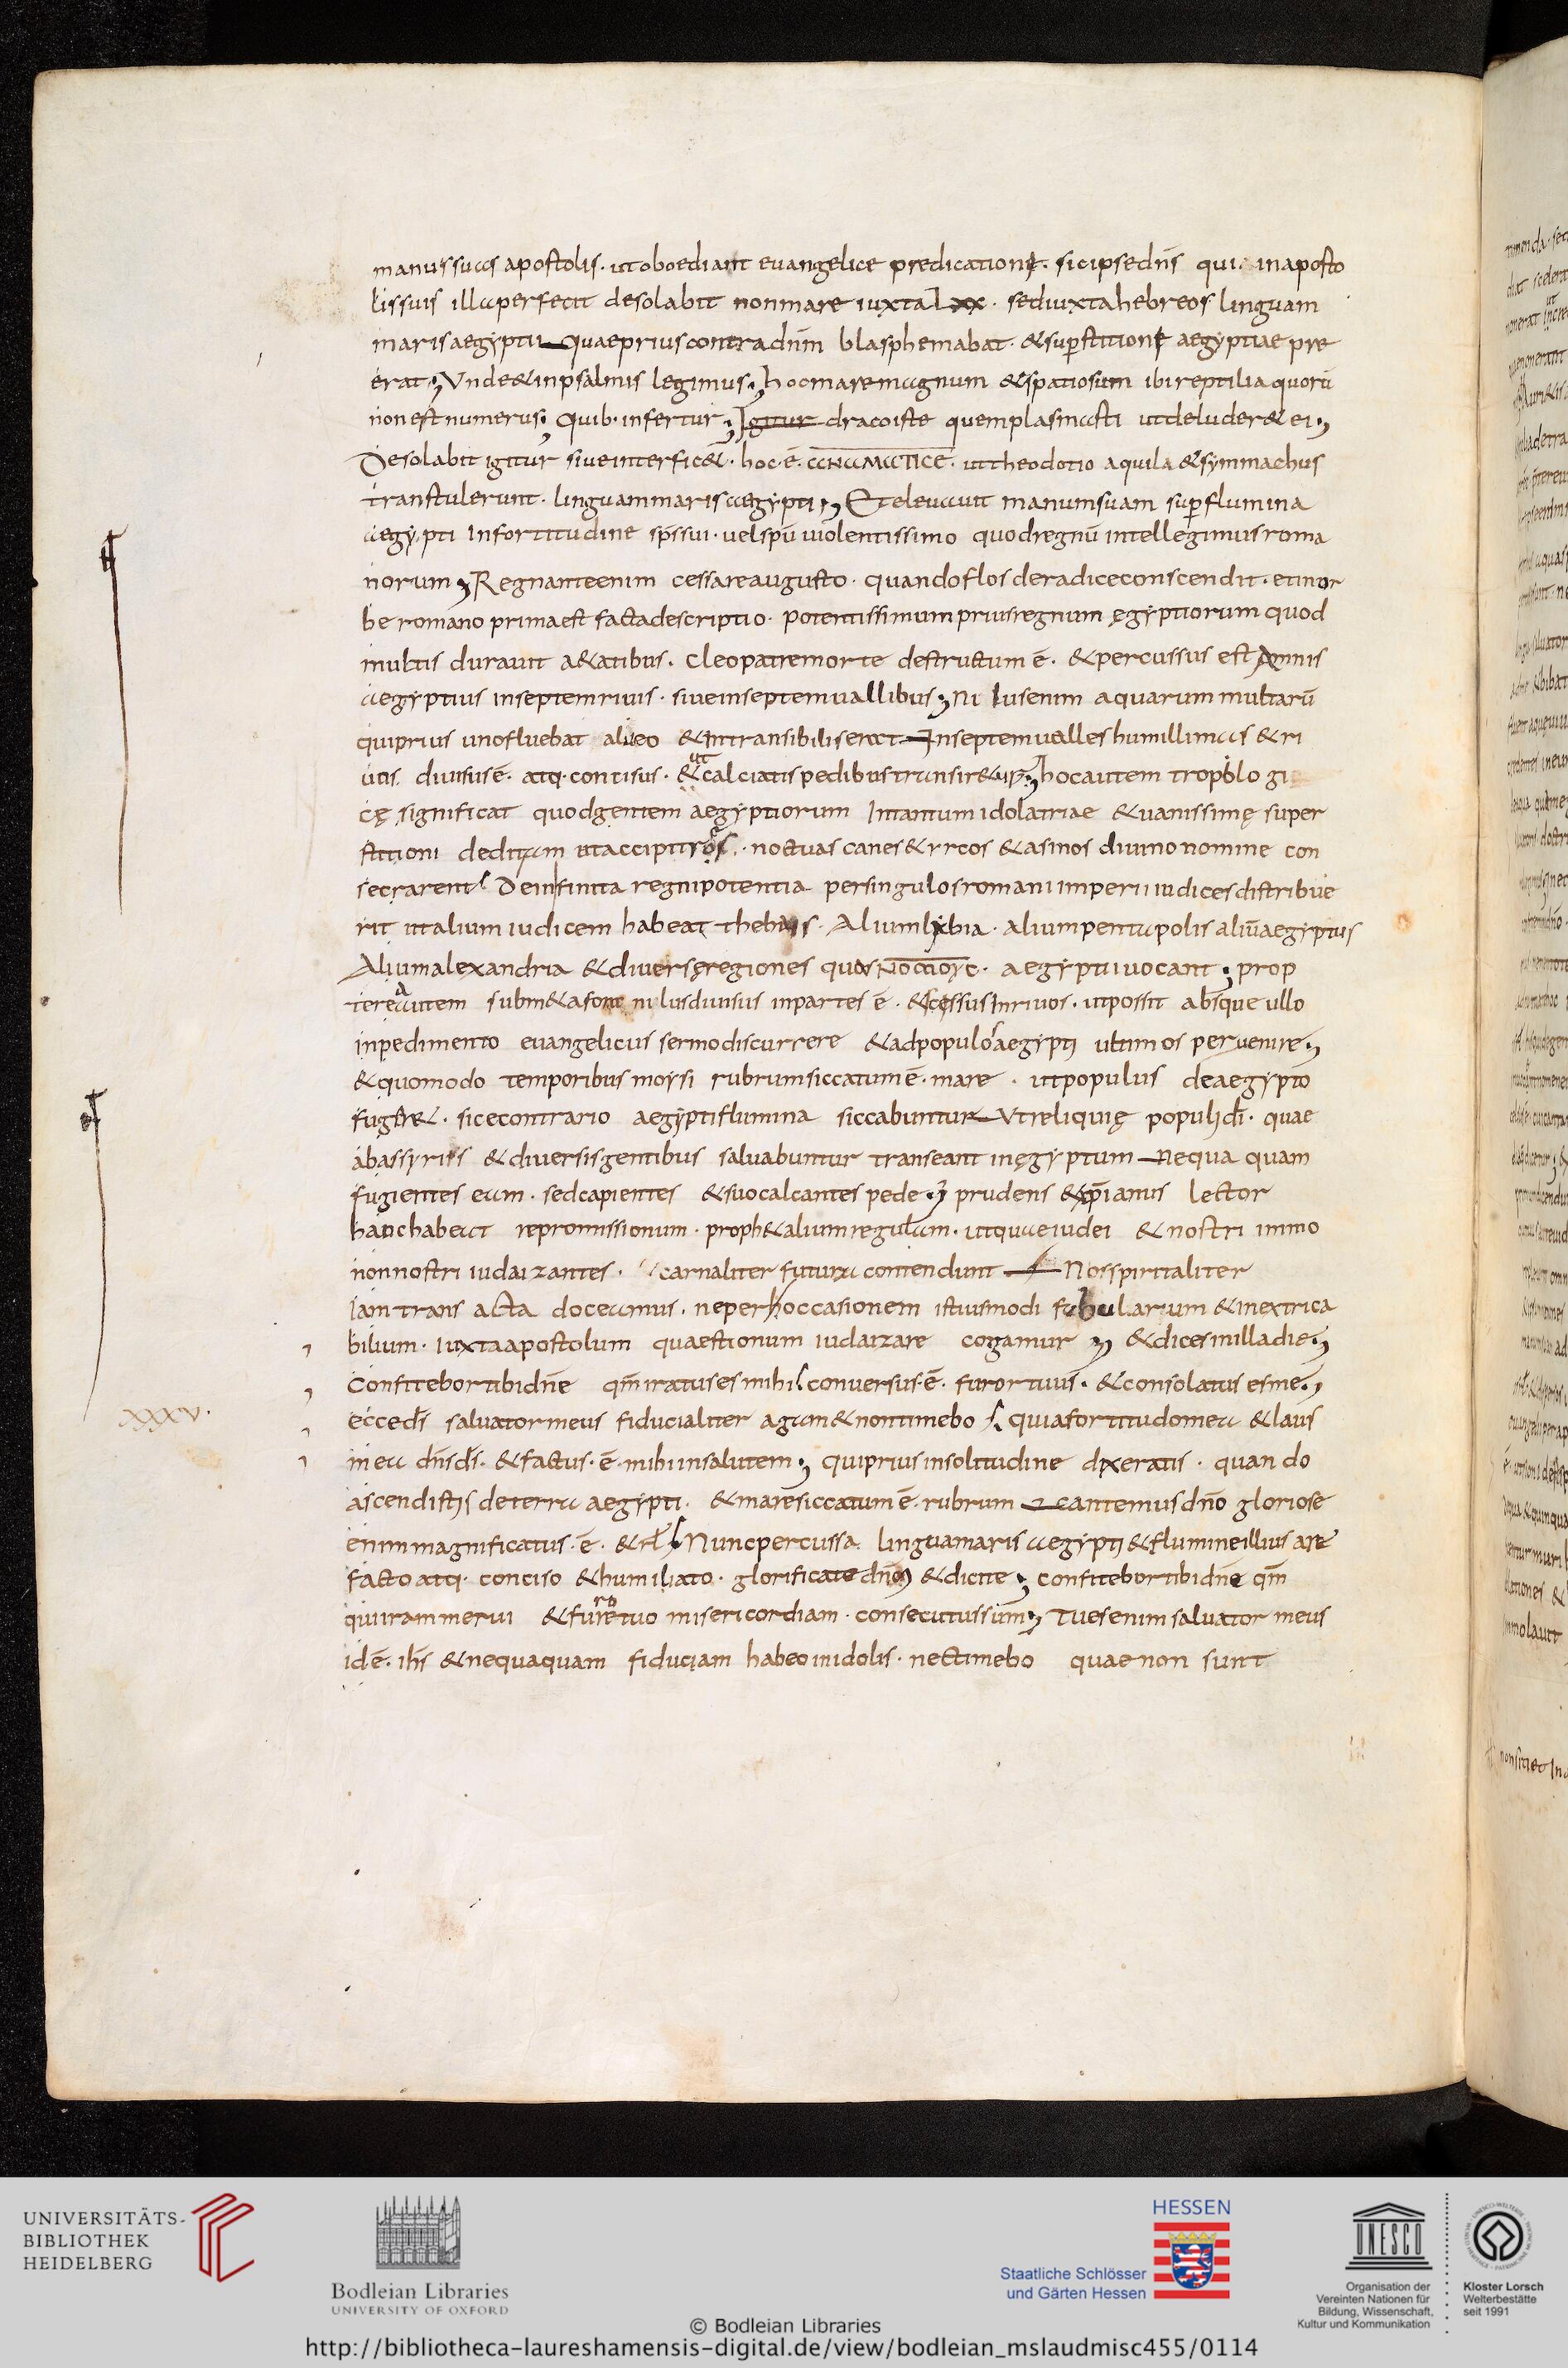 manus suas apostolis · ut oboediant euangelice predicationi · sic ipse dn̄s qui in aposto
lis suis illa perfecit desolabit non mare iuxta lxx · sed iuxta hebreos linguam
maris aegyptii quae prius contra dn̄m blasphemabat · & sup̄stitioni aegyptiae pre
erat; Vnde & in psalmis legimus; hoc mare magnum & spatiosum ibi reptilia quorū
non est numerus; Quib· infertur; Igitur draco iste quem plasmasti ut deluder& ei;
Desolabit igitur siue interfici& · hoc · ē · ut theodotio aquila & symmachus
transtulerunt · linguam maris aegypti; Et eleuauit manum suam sup̄ flumina
aegypti In fortitudine sp̄s sui · uel spū uiolentissimo quod regnū intellegimus roma
norum; Regnante enim cessare augusto · quando flos de radice conscendit · et in or
be romano prima est facta descriptio · potentissimum prius regnum ęgyptiorum quod
multis durauit a&atibus · cleopatre morte destructum ē · & percussus est amnis
aegyptius in septem riuis · siue in septem uallibus; Nilus enim aquarum multarū
qui prius uno fluebat alueo & Intransibilis erat In septem ualles humillimas & ri
uos diuisus ē · atq· concisus · & calciatis pedibus transir&ur; hoc autem tropolo gi
cę significat quod gentem aegyptiorum In tantum idolatriae & uanissimę super
stitioni deditam ut accipitres · noctuas canes & yrcos & asinos diuino nomine con
secrarent De infinita regni potentia per singulos romani imperii iudices distribue
rit ut alium iudicem habeat thebais · Alium lybia · alium pentapolis aliū aegyptus
Alium alexandria & diuersę regiones quas ΝΟΜΟΥC · aegyptii uocant; prop
terea autem subm&a fonte nilus diuisus in partes ē · & scessus In riuos · ut possit absque ullo
inpedimento euangelicus sermo discurrere & ad populos aegypti ultimos peruenire;
& quomodo temporibus moysi rubrum siccatum ē · mare · ut populus de aegypto
fuger& · sic e contrario aegypti flumina siccabuntur Vt reliquię populi dī · quae
ab assyriis & diuersis gentibus saluabuntur transeant in ęgyptum Nequa quam
fugientes eam · sed capientes & suo calcantes pede; prudens & xp̄ianus lector
hanc habeat repromissionum · proph&alium regulam · ut quae iudei & nostri immo
non nostri iudaizantes · carnaliter futura contendunt Nos spiritaliter
iam trans acta doceamus · ne per occasionem istiusmodi fabularum & inextrica
bilium · iuxta apostolum quaestionum iudaizare cogamur; & dices in illa die;
Confitebor tibi dn̄e qm̄ iratus es mihi conuersus · ē · furor tuus · & consolatus es me;
ecce ds̄ saluator meus fiducialiter agam & non timebo quia fortitudo mea & laus
mea dn̄s ds̄ · & factus · ē · mihi in salutem; qui prius in solitudine dixeratis · quan do
ascendistis de terra aegypti · & mare siccatum ē · rubrum cantemus dn̄o gloriose
enim magnificatus · ē · & rł Nunc percussa lingua maris aegypti & flumine illius are
facto atq· conciso & humiliato · glorificate dn̄m & dicite; confitebor tibi dn̄e qm̄
qui iram merui & furore tuo misericordiam · consecutus sum; Tu es enim saluator meus
id ē · ihs̄ & nequaquam fiduciam habeo in idolis · nec timebo quae non sunt
xxxv·
UNIVERSITÄTS-
BIBLIOTHEK
HEIDELBERG
Bodleian Libraries
UNIVERSITY OF OXFORD
© Bodleian Libraries
HESSEN
Staatliche Schlösser
und Gärten Hessen
UNESCO
Organisation der
Vereinten Nationen für
Bildung, Wissenschaft,
Kultur und Kommunikation
Kloster Lorsch
Welterbestätte
seit 1991
http://bibliotheca-laureshamensis-digital.de/view/bodleian_mslaudmisc455/0114